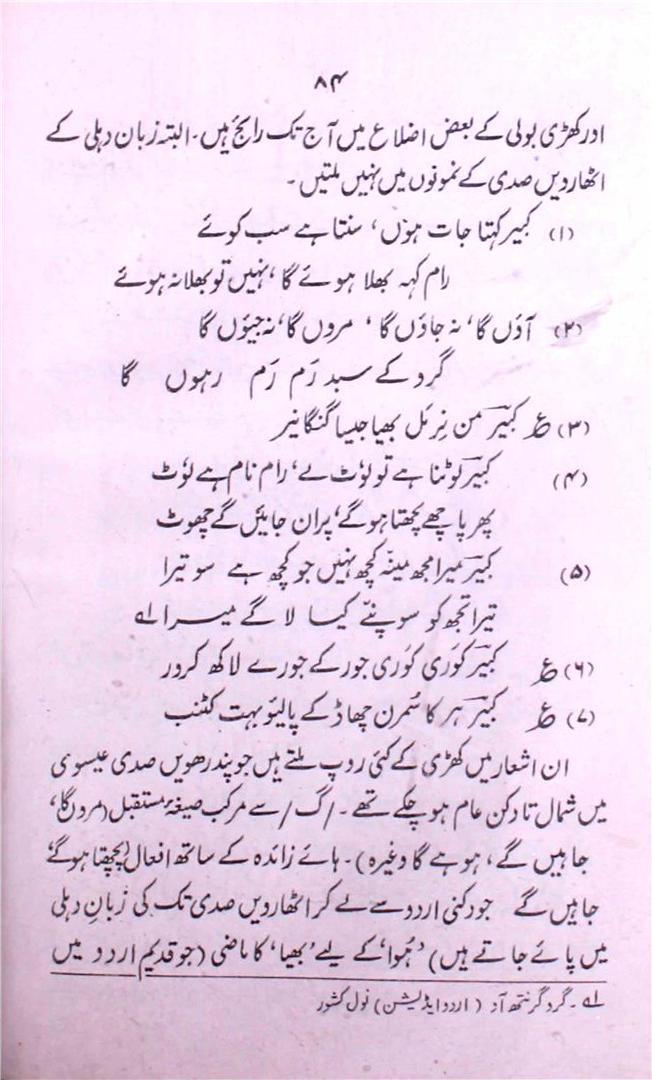 ۸۴
اور کھڑی بولی کے بعض اضلاع میں آج تک رائج ہیں۔ البتہ زبان دہلی کے
اٹھارویں صدی کے نمونوں میں نہیں ملتیں۔
(۱) کبیر کہتا جات ہوں، سنتا ہے سب کوئے
رام کہہ بھلا ہوئے گا، نہیں تو بھلا نہ ہوئے
(۲) آؤں گا، نہ جاؤں گا، مروں گا، نہ جیوں گا
گرو کے سبد رَم رَم رہوں گا
(۳) ع کبیرؔ من نِرمَل بھیا جیسا گنگا نیر
(۴) کبیرؔ لوٹنا ہے تو لوٹ لے، رام نام ہے لوٹ
پھر پاچھے پچھتا ہوگے، پران جائیں گے چھوٹ
(۵) کبیرؔ میرا مجھ مینہ کچھ نہیں جو کچھ ہے سو تیرا
تیرا تجھ کو سونپتے کیسا لاگے میرا لے
(۶) ع کبیرؔ کوَری کوَری جور کے جورے لاکھ کرور
(۷) ع کبیرؔ ہر کا سُمرن چھاڈ کے پالیو بہت کٹنب
ان اشعار میں کھڑی کے کئی روپ ملتے ہیں جو پندرھویں صدی عیسوی
میں شمال تا دکن عام ہو چکے تھے۔ /گ/ سے مرکب صیغۂ مستقبل (مروں گا،
جاہیں گے، ہو ہے گا وغیرہ)۔ ہائے زائدہ کے ساتھ افعال (پچھتا ہوگے
جاہیں گے جو دکنی اردو سے لے کر اٹھارویں صدی تک کی زبانِ دہلی
میں پائے جاتے ہیں) 'ہُوا' کے لیے 'بھیا' کا ماضی (جو قدیم اردو میں
لے۔ گرو گرنتھ آد (اردو ایڈیشن) نول کشور